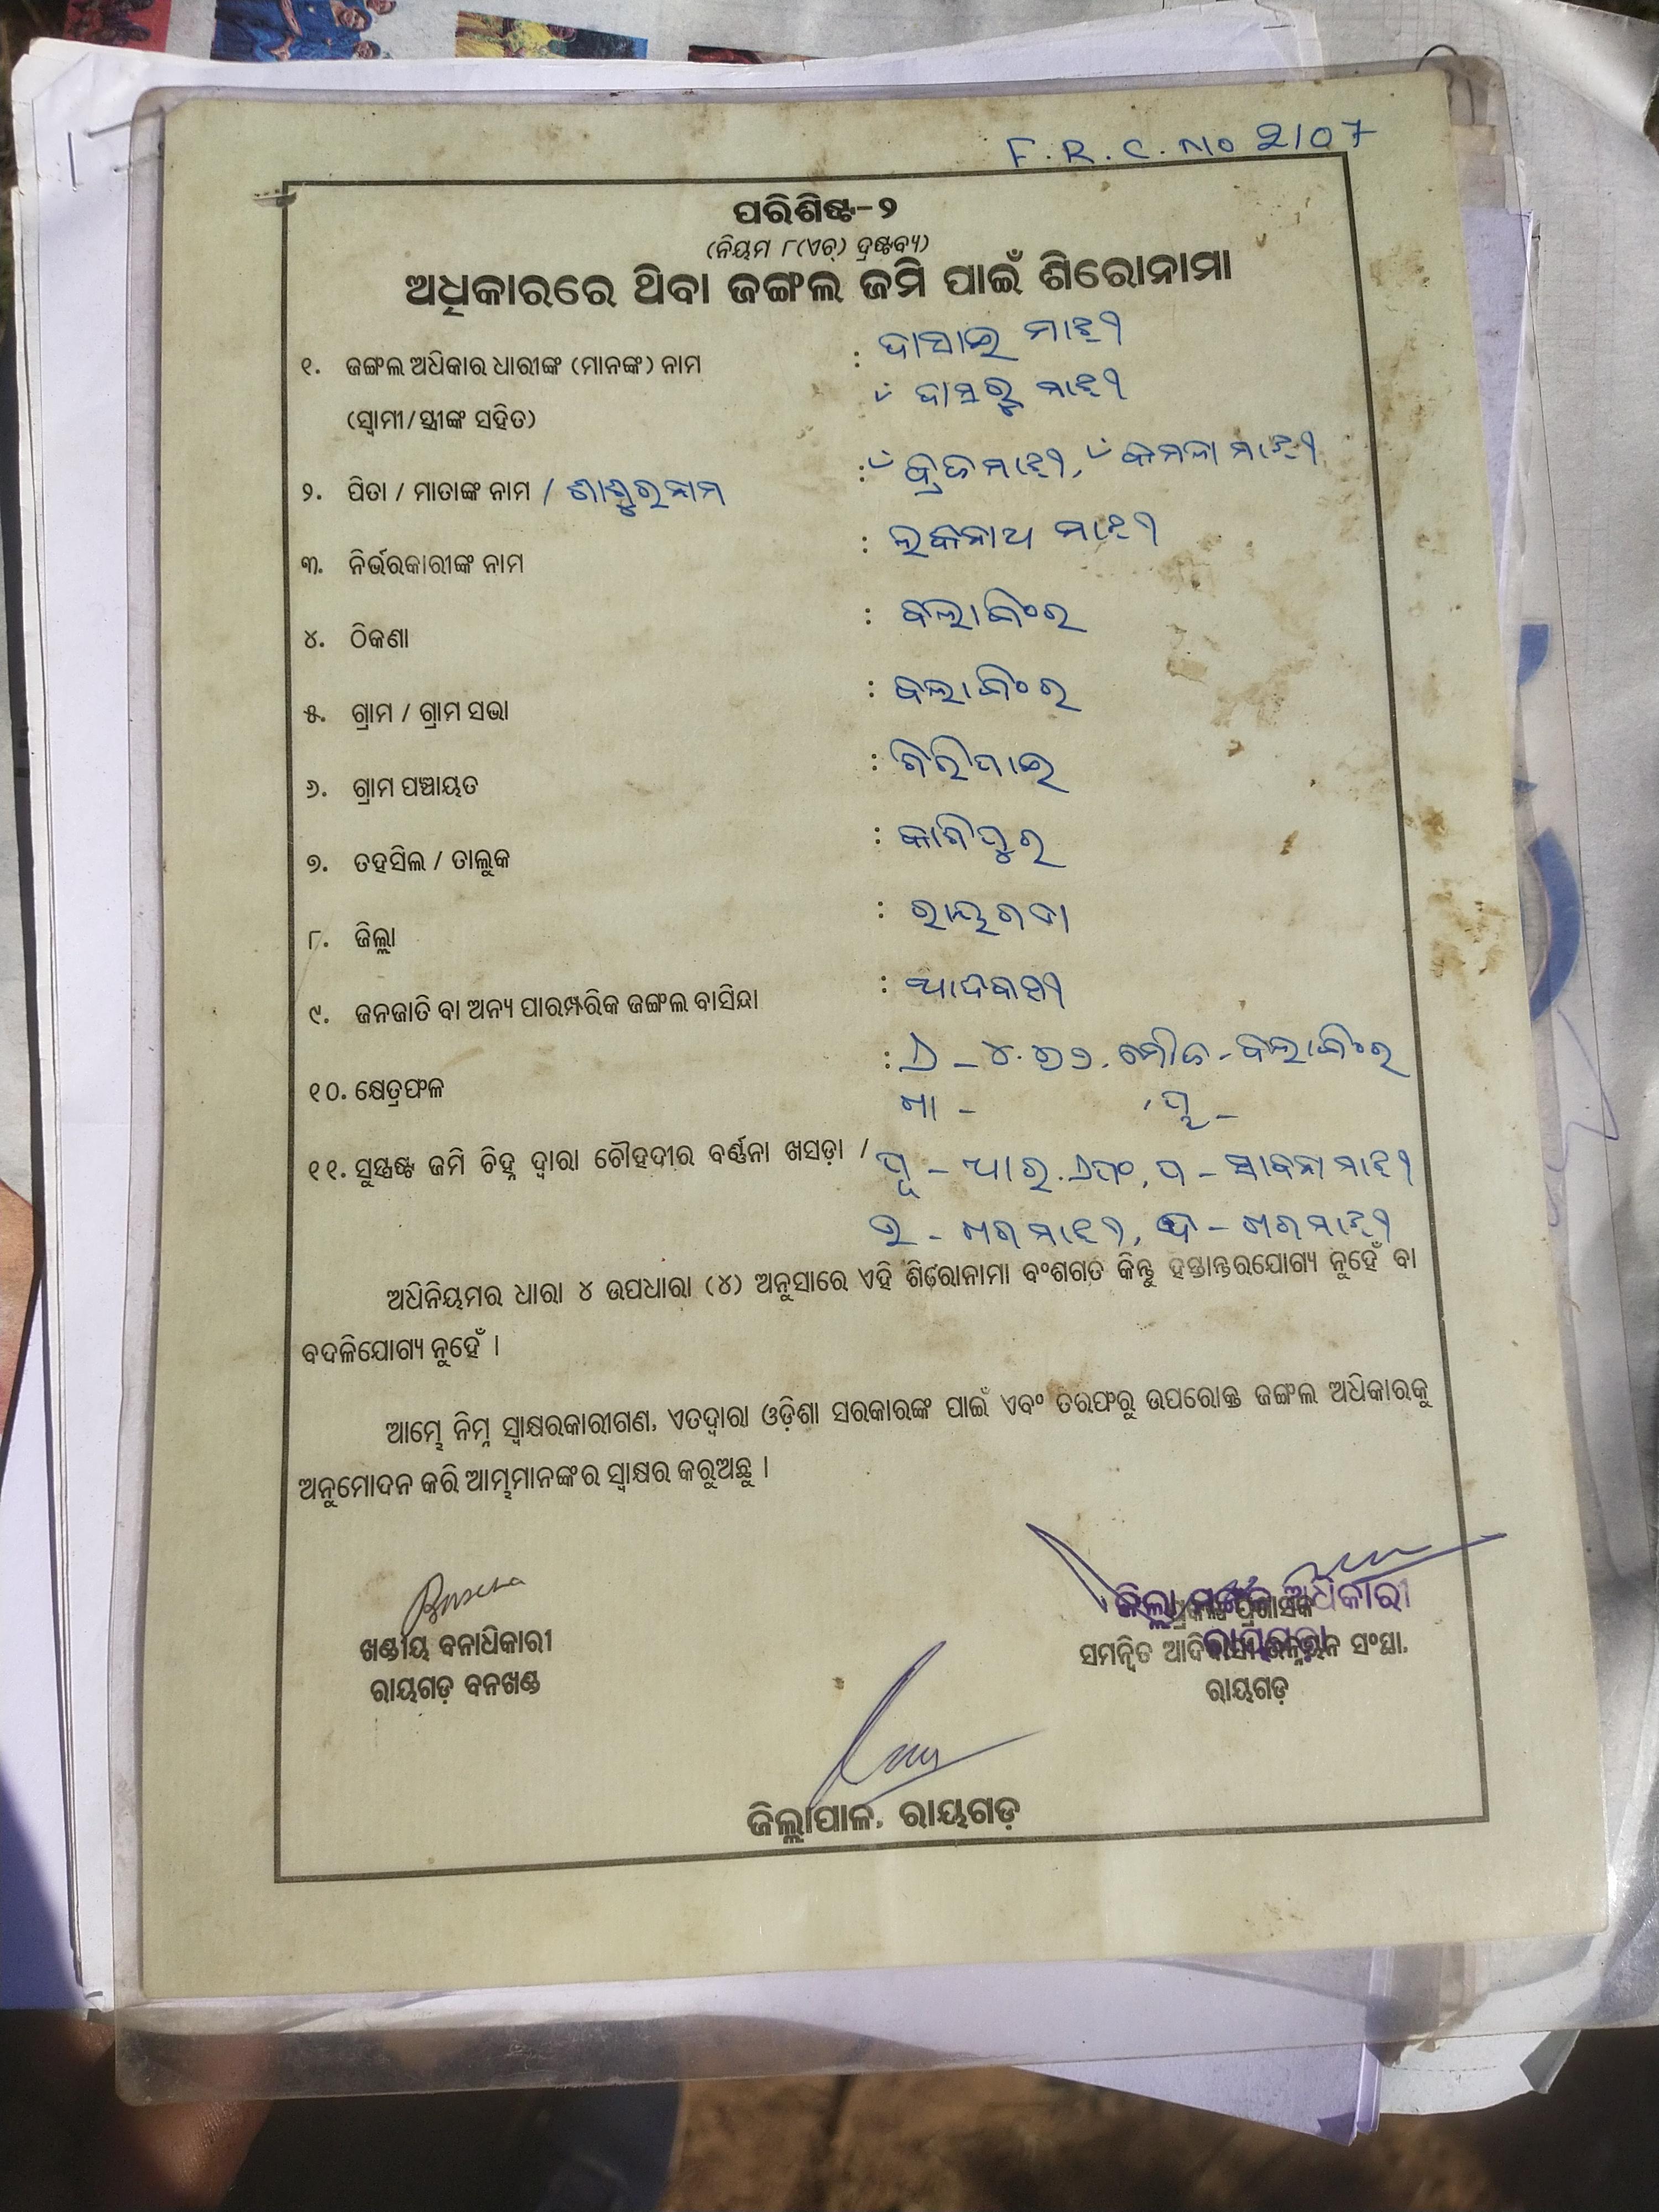 F. R. C. No 2107
ପରିଶିଷ୍ଟ-୨
(ନିୟମ ୮(ଏଚ୍) ଦ୍ରଷ୍ଟବ୍ୟ)
ଅଧିକାରରେ ଥିବା ଜଙ୍ଗଲ ଜମି ପାଇଁ ଶିରୋନାମା
୧. ଜଙ୍ଗଲ ଅଧିକାର ଧାରୀଙ୍କ (ମାନଙ୍କ) ନାମ : ମାଝୀ
(ସ୍ୱାମୀ/ସ୍ତ୍ରୀଙ୍କ ସହିତ) ମାଝୀ
୨. ପିତା / ମାତାଙ୍କ ନାମ / ଶାଶୁରନାମ : ବ୍ରଜ ମାଝୀ, ମାଝୀ
୩. ନିର୍ଭରକାରୀଙ୍କ ନାମ : ମାଝୀ
୪. ଠିକଣା :
୫. ଗ୍ରାମ / ଗ୍ରାମ ସଭା :
୬. ଗ୍ରାମ ପଞ୍ଚାୟତ :
୭. ତହସିଲ / ତାଲୁକ : କାଶିପୁର
୮. ଜିଲ୍ଲା : ରାୟଗଡା
୯. ଜନଜାତି ବା ଅନ୍ୟ ପାରମ୍ପରିକ ଜଙ୍ଗଲ ବାସିନ୍ଦା : ଆଦିବାସୀ
୧୦. କ୍ଷେତ୍ରଫଳ : ମୌଜା -
ଖା - , ପ୍ଲ -
୧୧. ସୁସ୍ପଷ୍ଟ ଜମି ଚିହ୍ନ ଦ୍ୱାରା ଚୌହଦୀର ବର୍ଣ୍ଣନା ଖସଡ଼ା / ପୂ - ଆର.ଏଫ, ପ - ମାଝୀ
ଉ - ମାଝୀ, ଦ - ମାଝୀ
ଅଧିନିୟମର ଧାରା ୪ ଉପଧାରା (୪) ଅନୁସାରେ ଏହି ଶିରୋନାମା ବଂଶଗତ କିନ୍ତୁ ହସ୍ତାନ୍ତରଯୋଗ୍ୟ ନୁହେଁ ବା
ବଦଳିଯୋଗ୍ୟ ନୁହେଁ ।
ଆମ୍ଭେ ନିମ୍ନ ସ୍ୱାକ୍ଷରକାରୀଗଣ, ଏତଦ୍ୱାରା ଓଡ଼ିଶା ସରକାରଙ୍କ ପାଇଁ ଏବଂ ତରଫରୁ ଉପରୋକ୍ତ ଜଙ୍ଗଲ ଅଧିକାରକୁ
ଅନୁମୋଦନ କରି ଆମ୍ଭମାନଙ୍କର ସ୍ୱାକ୍ଷର କରୁଅଛୁ ।
ଜିଲ୍ଲା ମଙ୍ଗଳ ଅଧିକାରୀ
ରାୟଗଡ଼ା
ଖଣ୍ଡୀୟ ବନାଧିକାରୀ
ରାୟଗଡ଼ ବନଖଣ୍ଡ
ପ୍ରକଳ୍ପ ପ୍ରଶାସକ
ସମନ୍ୱିତ ଆଦିବାସୀ ଉନ୍ନୟନ ସଂସ୍ଥା,
ରାୟଗଡ଼
ଜିଲ୍ଲାପାଳ, ରାୟଗଡ଼